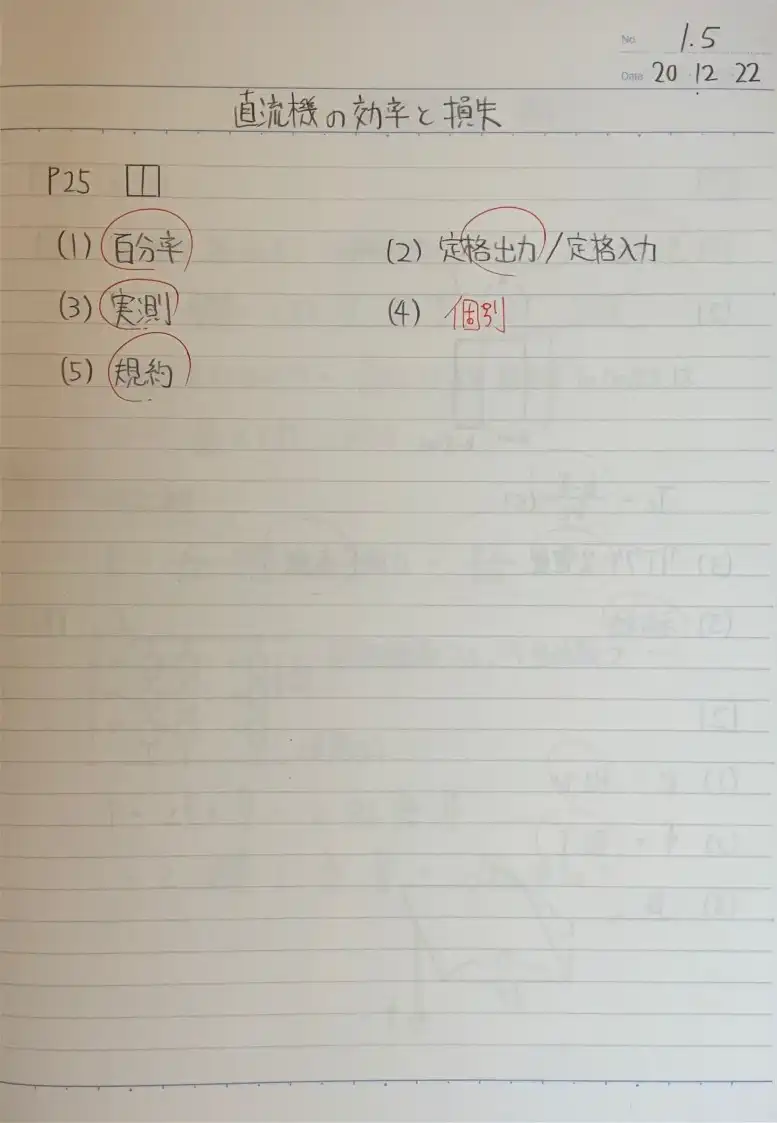 No. 1.5
Date 20・12・22
直流機の効率と損失
P25 [1]
(1) 百分率 (2) 定格出力/定格入力
(3) 実測 (4) 個別
(5) 規約